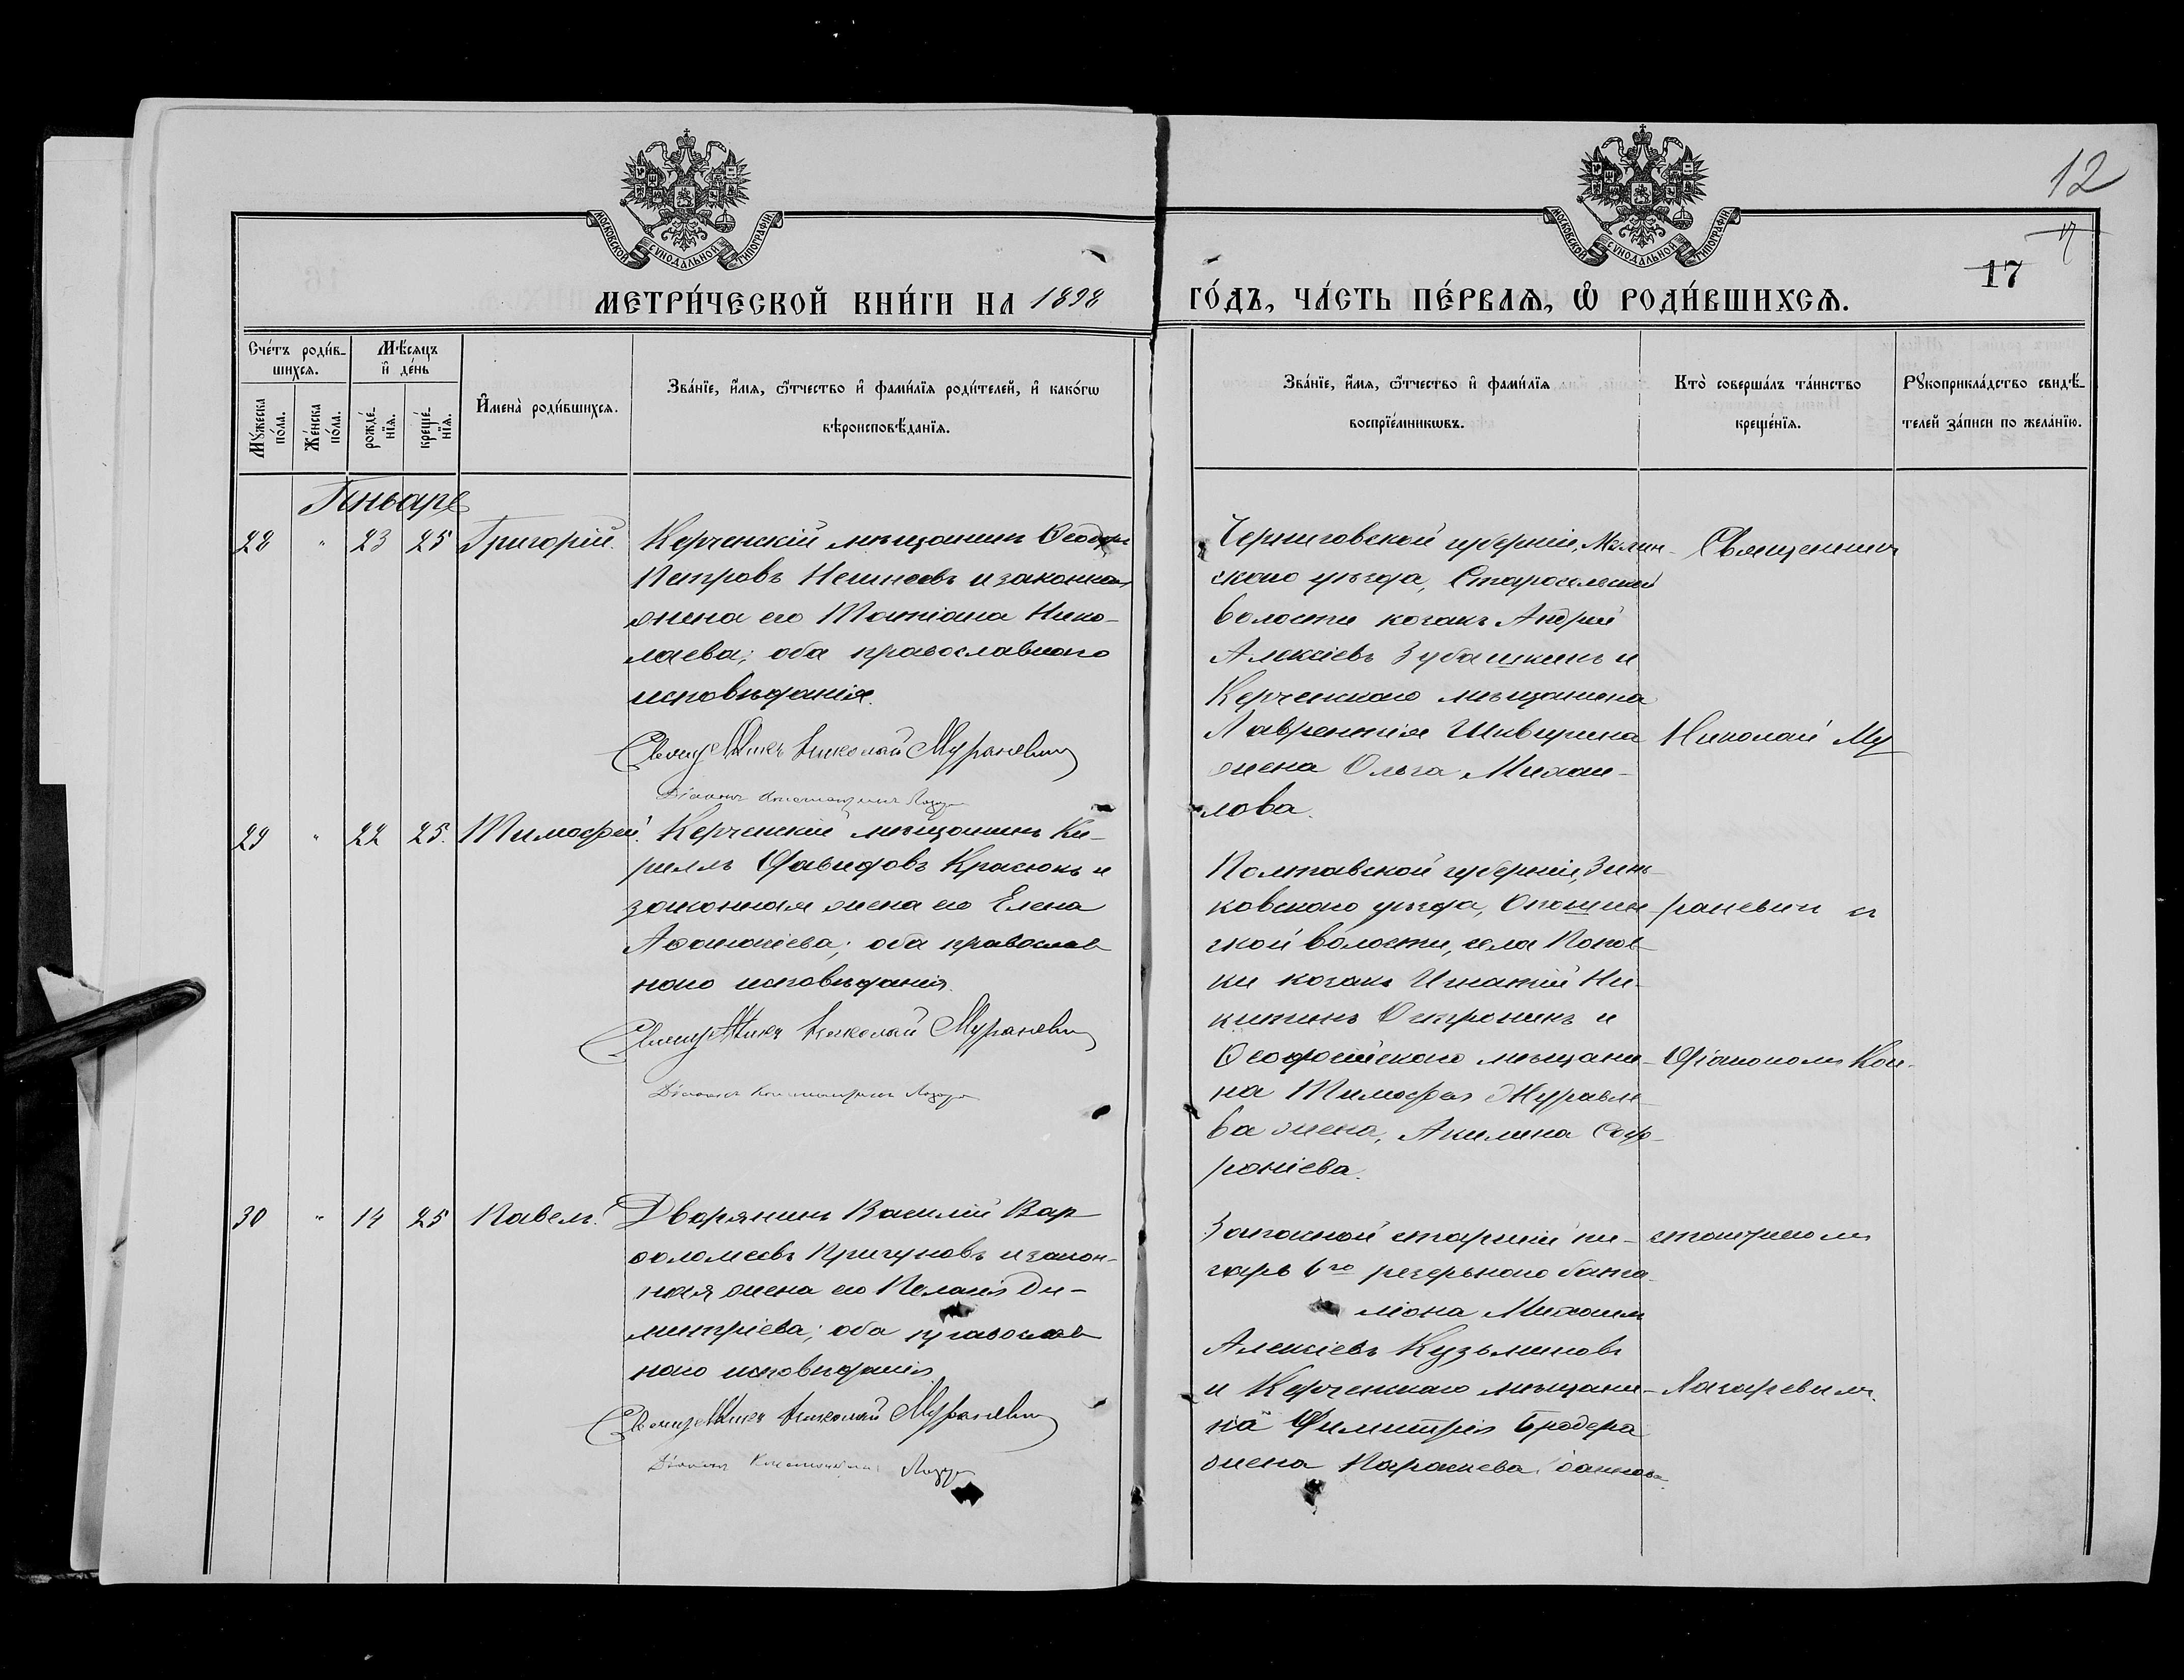 12
17
17
МОСКОВСКОЙ СУНОДАЛЬНОЙ ТИПОГРАФІИ
МОСКОВСКОЙ СУНОДАЛЬНОЙ ТИПОГРАФІИ
МЕТРИ́ЧЕСКОЙ КНИ́ГИ НА 1898
ГО́ДЪ, ЧА́СТЬ ПЕ́РВАѦ, Ѡ҆ РОДИ́ВШИХСѦ.
Сче́тъ роди́в-
шихсѧ.
Мѣ́сѧцъ
и҆ де́нь
Мꙋ́жеска
по́ла.
Же́нска
по́ла.
рожде́-
нїѧ.
креще́-
нїѧ.
И҆мена̀ роди́вшихсѧ.
Зва́нїе, и҆́мѧ, ѻ҆́тчество и҆ фами́лїѧ роди́телей, и҆ како́гѡ
вѣроисповѣ́данїѧ.
Зва́нїе, и҆́мѧ, ѻ҆́тчество и҆ фами́лїѧ
воспрїе́мникѡвъ.
Кто̀ соверша́лъ та́инство
креще́нїѧ.
Рꙋкоприкла́дство свидѣ́-
телей за́писи по жела́нїю.
Январь
28 " 23 25 Григорій. Керченскій мѣщанинъ Ѳеодоръ
Петровъ и законная
жена его Татіана Нико-
лаева; оба православнаго
исповѣданія.
Священникъ Николай Мураневич
Діаконъ Константинъ Лазар
Черниговской губерніи, Мглин-
скаго уѣзда, Старосельской
волости козакъ Андрей
Алексіевъ Зубашкинъ и
Керченскаго мѣщанина
Лаврентія Шивцрина
жена Ольга Михаи-
лова.
Священникъ
Николай Му
29 " 22 25. Тимофей. Керченскій мѣщанинъ Ки-
риллъ Давидовъ Красюкъ и
законная жена его Елена
Аѳанасіева; оба православ
наго исповѣданія.
Священникъ Николай Мураневич
Діаконъ Константинъ Лазар
Полтавской губерніи, Зинь
ковскаго уѣзда, Опошнян
ской волости, села Попов
ки козакъ Игнатій Ни-
китинъ и
Ѳеодосійскаго мѣщани-
на Тимофея Журавле
ва жена, Акилина Соф-
роніева.
раневич и
Діакономъ Кон-
30 " 14 25 Павелъ. Дворянинъ Василій Вар
ѳоломеевъ Кригуновъ и закон-
ная жена его Пелагія Ди-
митріева; оба православ
наго исповѣданія.
Священникъ Николай Мураневич
Діаконъ Константинъ Лазар
Запасной старшій пи-
сарь 6го резервнаго бата-
ліона Михаилъ
Алексіевъ Кузьминовъ
и Керченскаго мѣщани-
на Димитрія Бродера
жена Параскева
стантиномъ
Лазаревымъ.